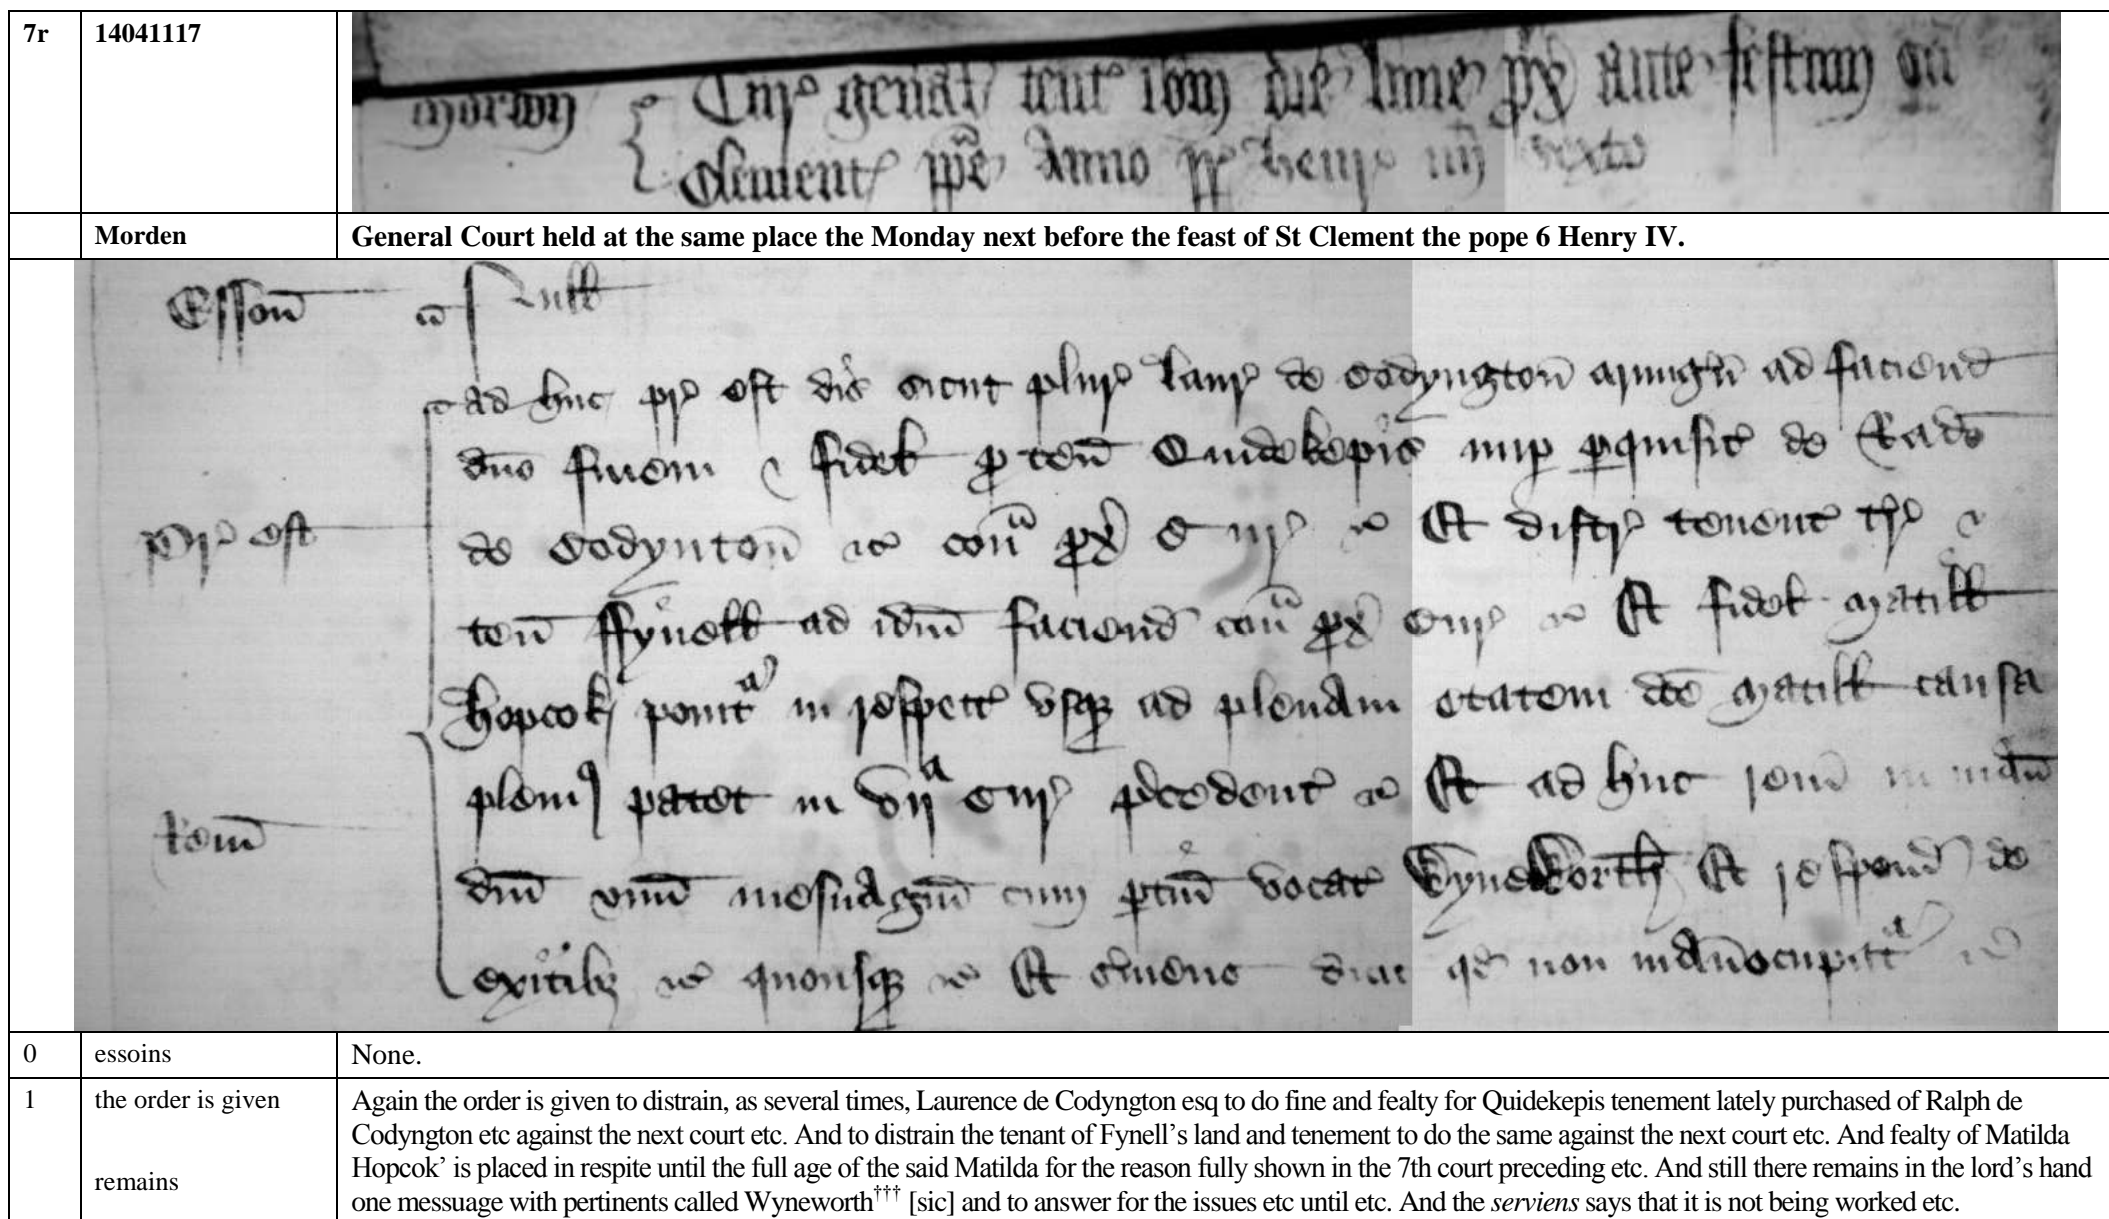 7r 14041117
Morden
Cur' gen'al' tent' ib'm die lune p'x' ante festum s'ci
Clementis p'pe Anno r' r' henr' iiij sexto
Morden General Court held at the same place the Monday next before the feast of St Clement the pope 6 Henry IV.
Esson' Null'
ad huc pr' est dis' sicut plur' laur' de Codyngton' armig'i ad faciend'
d'no finem & fidel' p' ten' Quidekepis nup' p'quisit' de Rad'o
Pr' est
de Codynton' &c con' p'x' Cur' &c Et distr' tenent' t'r' &
ten' ffynell' ad id'm faciend' con' p'x' Cur' &c Et fidel' Matill'
hopcok' ponit' in respect' vsq' ad plenam etatem d'c'e Matill' causa
plenius patet in vij Cur' p'cedent' &c Et ad huc rem' in man'
Rem'
d'ni vnu' mesuagiu' cum p'tin' vocat' Wyneworth Et respond' de
exitib' &c quousq' &c Et s'uiens dicit q'd non manuocupat' &c
0 essoins None.
1 the order is given Again the order is given to distrain, as several times, Laurence de Codyngton esq to do fine and fealty for Quidekepis tenement lately purchased of Ralph de
Codyngton etc against the next court etc. And to distrain the tenant of Fynell’s land and tenement to do the same against the next court etc. And fealty of Matilda
remains Hopcok’ is placed in respite until the full age of the said Matilda for the reason fully shown in the 7th court preceding etc. And still there remains in the lord’s hand
one messuage with pertinents called Wyneworth††† [sic] and to answer for the issues etc until etc. And the serviens says that it is not being worked etc.